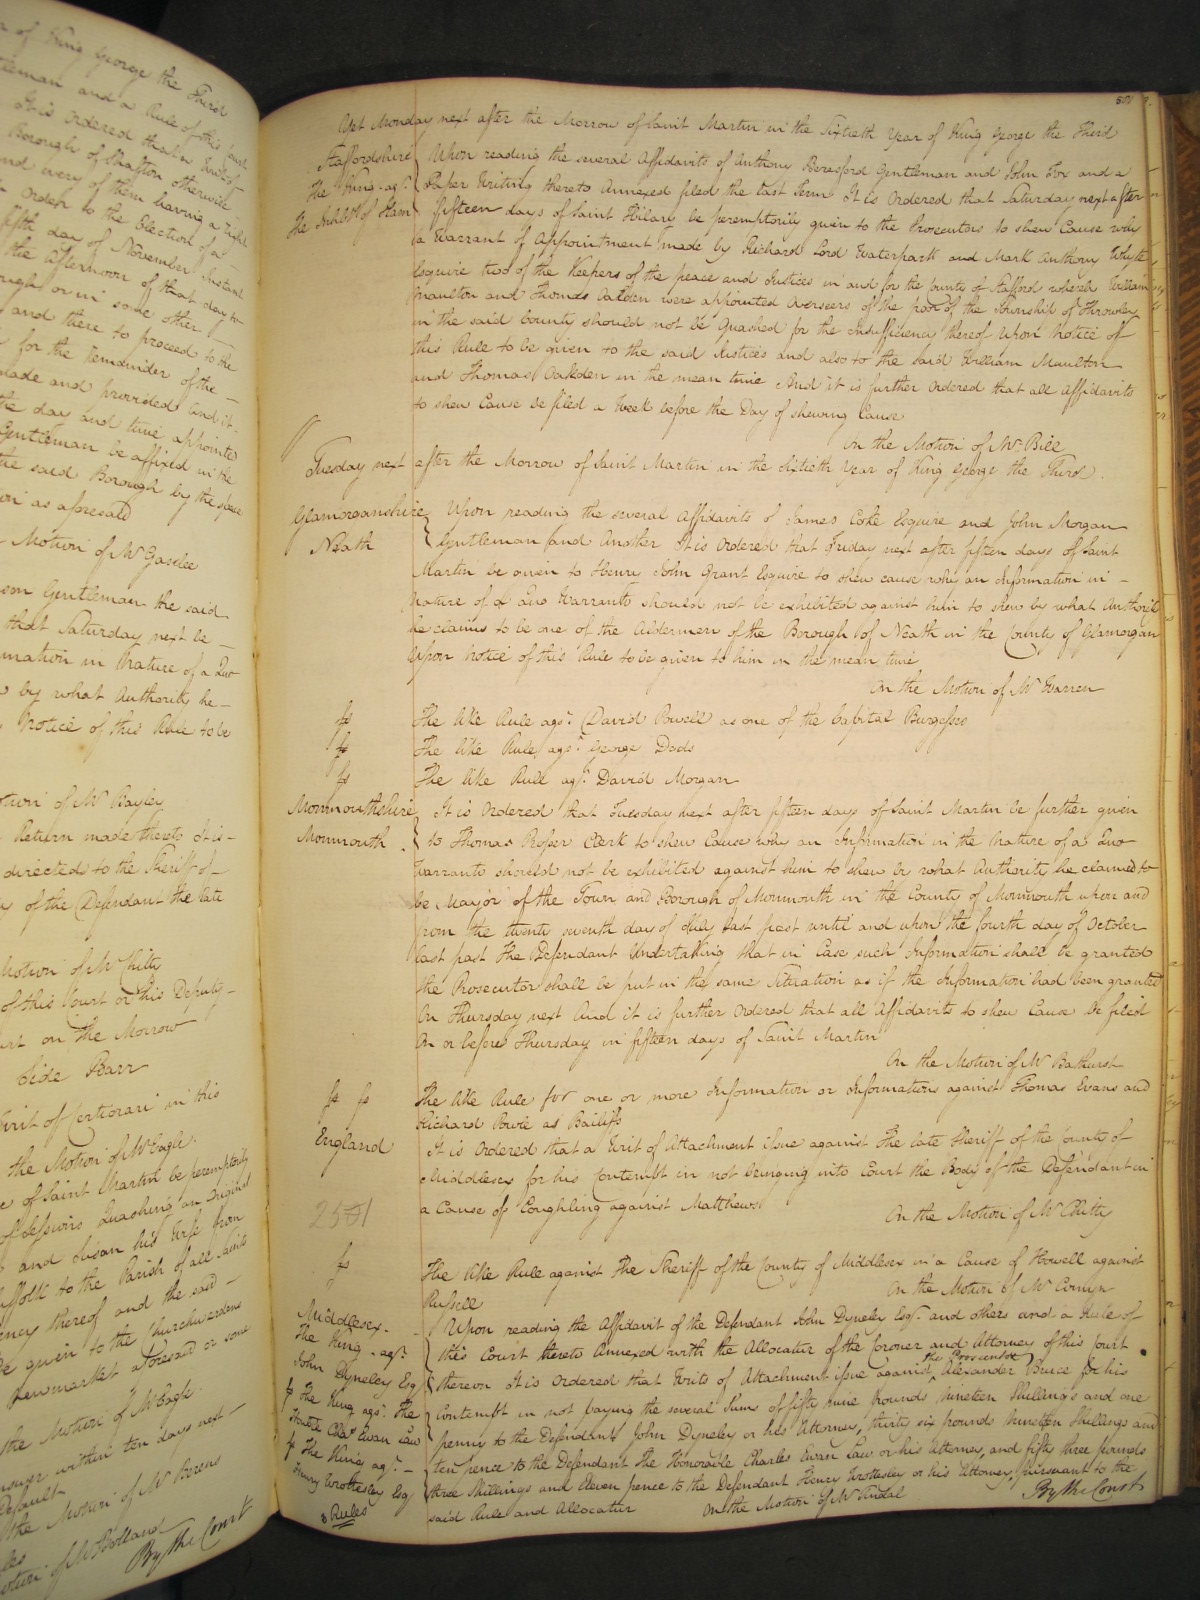 of King George the Third
Gentleman and a Rule of this Court
It is Ordered that a Writ of
Borough of Shafton otherwise
and every of them having a Right
in Order to the Election of a
fifth day of November Instant
the afternoon of that day to
or in some other
and there to proceed to the
for the remainder of the
made and provided And it
the day and time appointed
Gentleman be affixed in the
the said Borough by the space
as aforesaid
Motion of Mr Gaselee
Gentleman the said
that Saturday next be
Information in Nature of a Quo
by what Authority he
Notice of this Rule to be
Motion of Mr Bayley
Return made thereto It is
directed to the Sheriff of
of the Defendant the late
Motion of Mr Chitty
of this Court or his Deputy
on the Morrow
Side Barr
Writ of Certiorari in this
the Motion of Mr Eagle
of Saint Martin be peremptorily
of Sessions Quashing an Original
and Susan his Wife from
Suffolk to the Parish of all Saints
thereof and the said
be given to the Churchwardens
Newmarket aforesaid or some
the Motion of Mr Eagle
within ten days next
Default
the Motion of Mr
Motion of Mr Bolland
By the Court
Yet Monday next after the Morrow of Saint Martin in the Sixtieth Year of King George the Third
Staffordshire Upon reading the several Affidavits of Anthony Beresford Gentleman and John Fox and a
The King agt. Paper Writing thereto Annexed filed the last Term It is Ordered that Saturday next after
The Inhabts of Ilam fifteen days of Saint Hilary be peremptorily given to the Prosecutors to shew Cause why
a Warrant of Appointment made by Richard Lord Waterpark and Mark Anthony Whyte
Esquire two of the Keepers of the peace and Justices in and for the County of Stafford whereby William
Maulton and Thomas Oakden were appointed Overseers of the poor of the Township of Throwley
in the said County should not be Quashed for the Insufficiency thereof Upon Notice of
this Rule to be given to the said Justices and also to the said William Maulton
and Thomas Oakden in the mean time And it is further Ordered that all Affidavits
to shew Cause be filed a Week before the Day of shewing Cause
On the Motion of Mr Bill
Tuesday next after the Morrow of Saint Martin in the Sixtieth Year of King George the Third
Glamorganshire Upon reading the several Affidavits of James Coke Esquire and John Morgan
Neath Gentleman and Another It is Ordered that Friday next after fifteen days of Saint
Martin be given to Henry John Grant Esquire to shew cause why an Information in
Nature of a Quo Warranto should not be exhibited against him to shew by what Authority
he claims to be one of the Aldermen of the Borough of Neath in the County of Glamorgan
Upon Notice of this Rule to be given to him in the mean time
On the Motion of Mr Warren
fs The like Rule agst. David Powell as one of the Capital Burgesses
fs The like Rule agst. George Dods
fs The like Rule agst. David Morgan
Monmouthshire It is Ordered that Tuesday next after fifteen days of Saint Martin be further given
Monmouth to Thomas Prosser Clerk to shew Cause why an Information in the Nature of a Quo
Warranto should not be exhibited against him to shew by what Authority he claimed to
be Mayor of the Town and Borough of Monmouth in the County of Monmouth upon and
from the twenty seventh day of July last past until and upon the fourth day of October
last past The Defendant Undertaking that in Case such Information shall be granted
the Prosecutor shall be put in the same Situation as if the Information had been granted
On Thursday next And it is further Ordered that all Affidavits to shew Cause be filed
On or before Thursday in fifteen days of Saint Martin
On the Motion of Mr Bathurst
fs fs The like Rule for one or more Information or Informations against Thomas Evans and
Richard Powle as Bailiffs
England It is Ordered that a Writ of Attachment issue against The late Sheriff of the County of
Middlesex for his Contempt in not bringing into Court the Body of the Defendant in
2501 a Cause of Coughling against Matthews
On the Motion of Mr Chitty
fs The like Rule against The Sheriff of the County of Middlesex in a Cause of Howell against
Russell On the Motion of Mr Comyn
Middlesex Upon reading the Affidavit of the Defendant John Dyneley Esqr. and others and a Rule of
The King agt. this Court thereto Annexed with the Allocatur of the Coroner and Attorney of this Court
John Dyneley Esq thereon It is Ordered that Writs of Attachment issue against the Prosecutor Alexander Bruce for his
fs The King agst. The Contempt in not paying the several Sums of fifty nine Pounds Nineteen Shillings and one
Honble Chas. Ewan Law penny to the Defendant John Dyneley or his Attorney, thirty six pounds Nineteen Shillings and
fs The King agt. ten pence to the Defendant The Honorable Charles Ewan Law or his Attorney, and fifty three pounds
Henry Wrottesley Esq three Shillings and Eleven pence to the Defendant Henry Wrottesley or his Attorney, Pursuant to the
8 Rules said Rule and Allocatur On the Motion of Mr Tindal By the Court